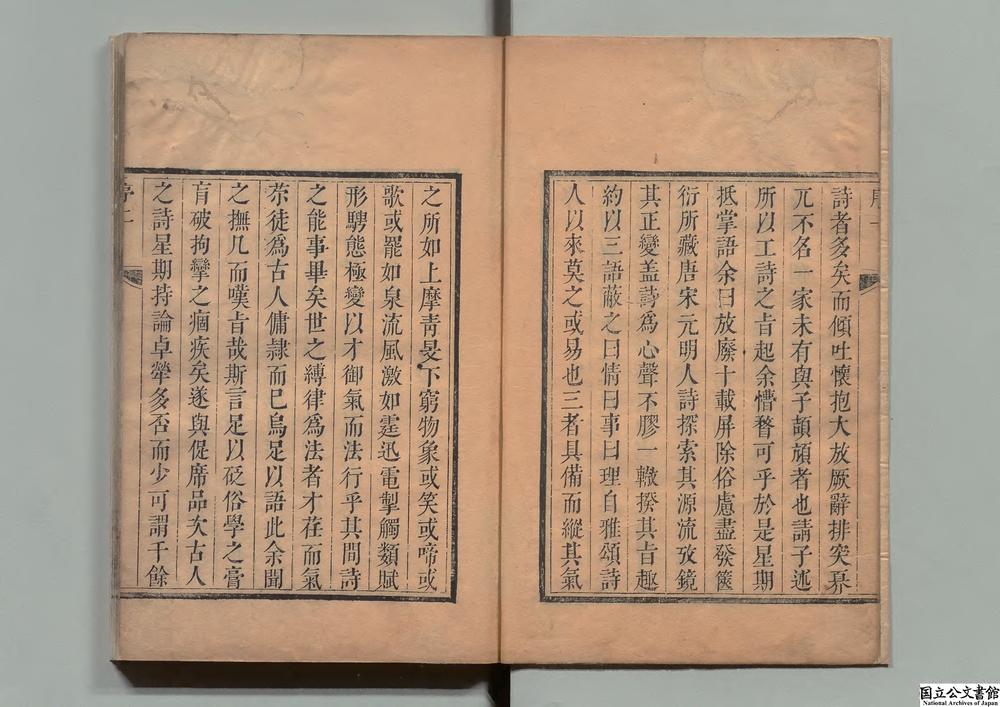 詩者多矣而傾吐懷抱大放厥辭排突冥
兀不名一家未有與子頡頏者也請子述
所以工詩之旨起余懵瞀可乎於是星期
抵掌語余曰放廢十載屏除俗慮盡發篋
衍所藏唐宋元明人詩探索其源流攷鏡
其正變盖詩爲心聲不膠一轍揆其旨趣
約以三語蔽之曰情曰事曰理自雅頌詩
人以來莫之或易也三者具備而縱其氣
之所如上摩靑旻下窮物象或笑或啼或
歌或罷如泉流風激如霆迅電掣觸類賦
形騁態極變以才御氣而法行乎其間詩
之能事畢矣世之縛律爲法者才荏而氣
苶徒爲古人傭隷而已烏足以語此余聞
之撫几而嘆旨哉斯言足以砭俗學之膏
肓破拘攣之痼疾矣遂與促席品次古人
之詩星期持論卓犖多否而少可謂千餘
序二
国立公文書館
National Archives of Japan